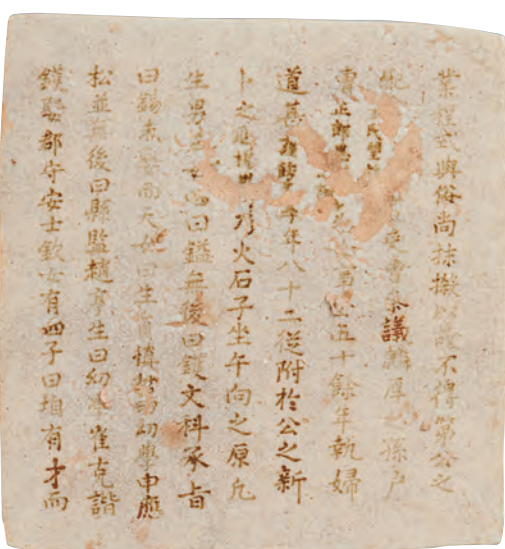 業程式與俗尚抹摋以故不得第公之
配氏贈議厚之孫戶
曹正郎五十餘年執婦
道甚今年八十二從附於公之新
卜之火石子坐午向之原凡
生男女曰鎰無後曰鍰文科承旨
曰錫未娶而夭女曰生員愼曰幼學申應
松並無後曰縣監趙亨生曰幼學崔克諧
鍰娶郡守安士欽女有四子曰垍有才而